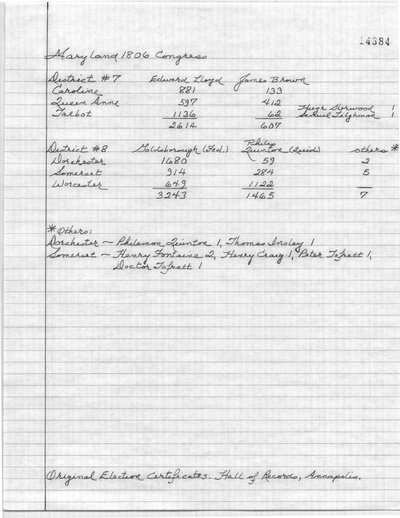 14384
Maryland 1806 Congress
District #7 Edward Lloyd James Brown
Caroline 881 133
Queen Anne 597 412 Hugh Sherwood 1
Talbot 1136 62 Samuel Tilghman 1
2614 607
District #8 Goldsborough (Fed.) Philip Quinton (Quid) others *
Dorchester 1680 59 2
Somerset 914 284 5
Worcester 649 1122 —
3243 1465 7
* Others:
Dorchester ~ Philemon Quinton 1, Thomas Insley 1
Somerset ~ Henry Fontaine 2, Henry Craig 1, Peter 1,
Doctor 1
Original Election Certificates. Hall of Records, Annapolis.